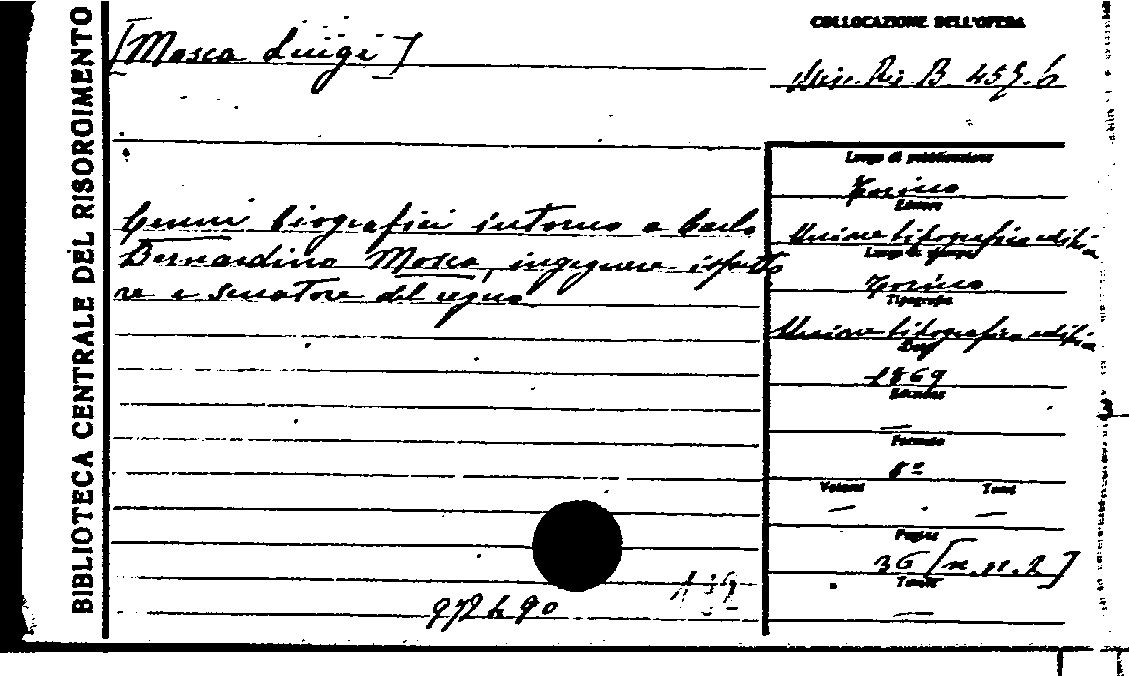 BIBLIOTECA CENTRALE DEL RISORGIMENTO
[Mosca Luigi]
COLLOCAZIONE DELL'OPERA
Misc. Ris. B. 459.6
Cenni biografici intorno a Carlo
Bernardino Mosca, ingegnere ispetto
re e senatore del regno
Luogo di pubblicazione
Torino
Editore
Unione tipografica editrice
Luogo di stampa
Torino
Tipografia
Unione tipografica editrice
Data
1869
Edizione
—
Formato
8º
Volumi Tomi
— —
Pagine
36 [n. n. 2]
Tavole
—